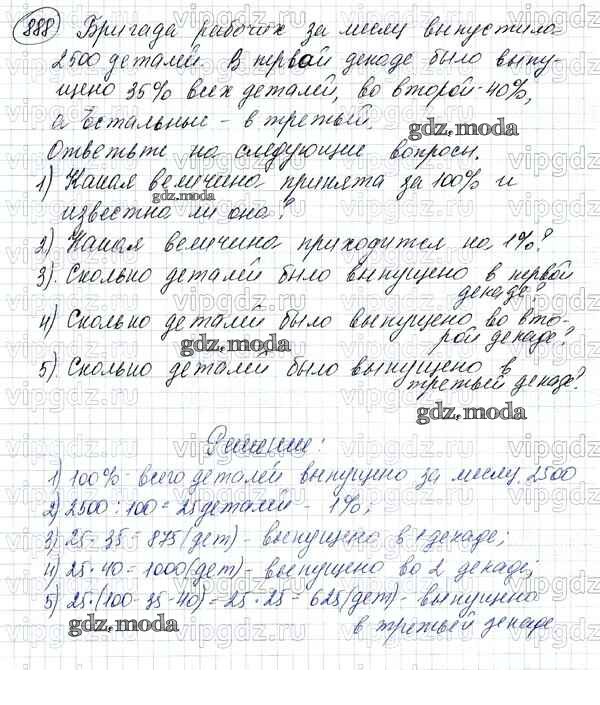 888 Бригада рабочих за месяц выпустила
2500 деталей. В первой декаде было выпу-
щено 35% всех деталей, во второй - 40%,
а остальные - в третьей.
gdz.moda
Ответьте на следующие вопросы.
1) Какая величина принята за 100% и
gdz.moda
известна ли она?
2) Какая величина приходится на 1%?
3) Сколько деталей было выпущено в первой
декаде?
4) Сколько деталей было выпущено во вто-
рой декаде?
gdz.moda
5) Сколько деталей было выпущено в
третьей декаде?
gdz.moda
Решение:
1) 100% - всего деталей выпущено за месяц 2500
2) 2500 : 100 = 25 деталей - 1%;
3) 25 · 35 = 875 (дет) - выпущено в 1 декаде;
4) 25 · 40 = 1000 (дет) - выпущено во 2 декаде;
5) 25 · (100 - 35 - 40) = 25 · 25 = 625 (дет) - выпущено
gdz.moda
в третьей декаде
vipgdz.ru